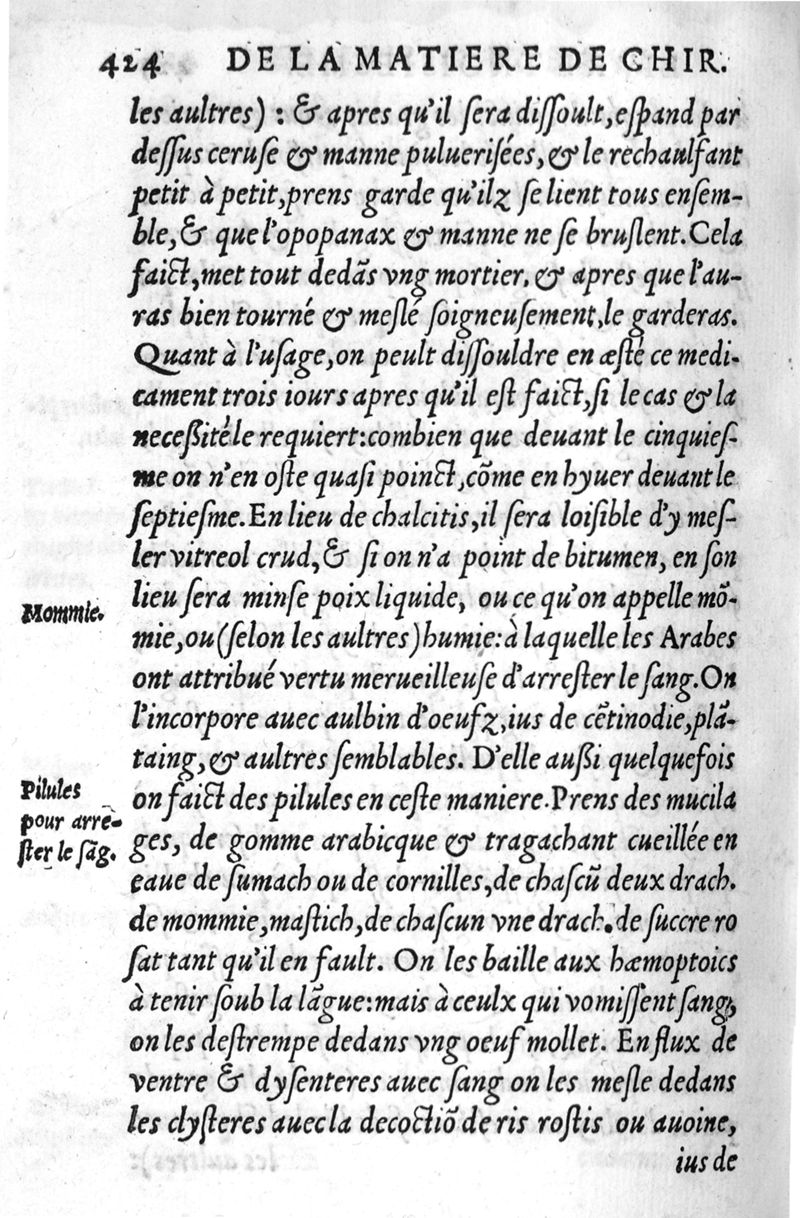 424 DE LA MATIERE DE CHIR.
les aultres) : & apres qu'il ſera diſſoult, eſpand par
deſſus ceruſe & manne puluerisées, & le rechaulfant
petit à petit, prens garde qu'ilz ſe lient tous enſem-
ble, & que l'opopanax & manne ne ſe bruſlent. Cela
faict, met tout dedãs vng mortier, & apres que l'au-
ras bien tourné & meſlé ſoigneuſement, le garderas.
Quant à l'uſage, on peult diſſouldre en æſté ce medi-
cament trois iours apres qu'il eſt faict, ſi le cas & la
neceſſité le requiert: combien que deuant le cinquieſ-
me on n'en oſte quaſi poinct, cõme en hyuer deuant le
ſeptieſme. En lieu de chalcitis, il ſera loiſible d'y meſ-
ler vitreol crud, & ſi on n'a point de bitumen, en ſon
lieu ſera minſe poix liquide, ou ce qu'on appelle mõ-
Mommie.
mie, ou (ſelon les aultres) humie: à laquelle les Arabes
ont attribué vertu merueilleuſe d'arreſter le ſang. On
l'incorpore auec aulbin d'oeufz, ius de cẽtinodie, plã-
taing, & aultres ſemblables. D'elle auſſi quelquefois
Pilules
pour arre-
ſter le ſãg.
on faict des pilules en ceſte maniere. Prens des mucila
ges, de gomme arabicque & tragachant cueillée en
eaue de ſumach ou de cornilles, de chaſcũ deux drach.
de mommie, maſtich, de chaſcun vne drach. de ſuccre ro
ſat tant qu'il en fault. On les baille aux hæmoptoics
à tenir ſoub la lãgue: mais à ceulx qui vomiſſent ſang,
on les deſtrempe dedans vng oeuf mollet. En flux de
ventre & dyſenteres auec ſang on les meſle dedans
les clyſteres auec la decoctiõ de ris roſtis ou auoine,
ius de